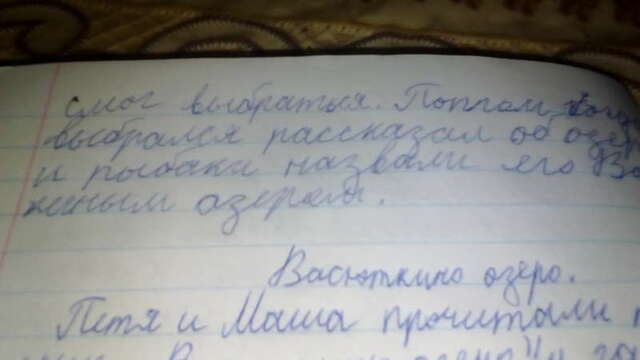 смог выбраться. Потом, когда
выбрался рассказал об озере
и рыбаки назвали его Ва
киным озером.
Васюткино озеро.
Петя и Маша прочитали